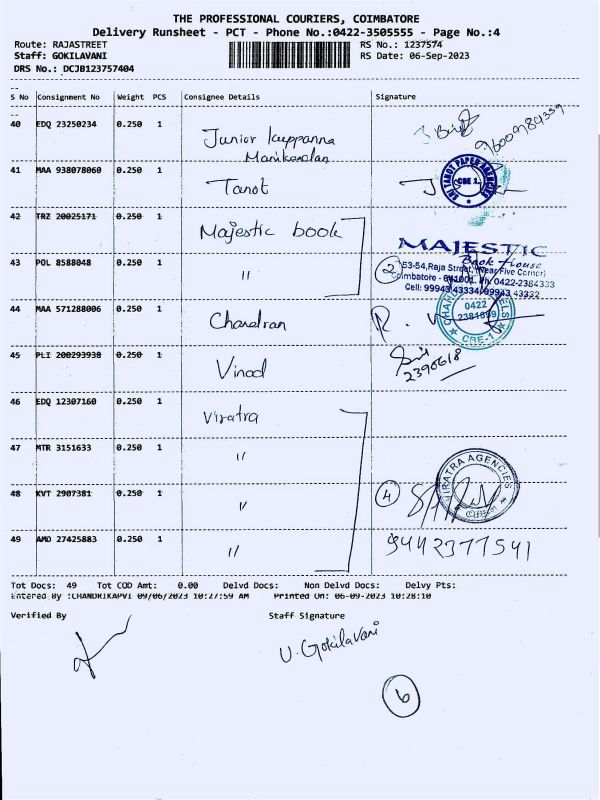 THE PROFESSIONAL COURIERS, COIMBATORE
Delivery Runsheet - PCT - Phone No.:0422-3505555 - Page No.:4
Route: RAJASTREET RS No.: 1237574
Staff: GOKILAVANI RS Date: 06-Sep-2023
DRS No.: DCJB123757404
S No Consignment No Weight PCS Consignee Details Signature
40 EDQ 23250234 0.250 1 Junior kuppanna
Manikandan
9600984359
41 MAA 938078060 0.250 1 Tanot
SRI TANOT PAPER AGENCIES
CBE 1.
42 TRZ 20025171 0.250 1 Majestic book
MAJESTIC
Book House
43 POL 8588048 0.250 1 "
2
53-54, Raja Street, (Near Five Corner)
Coimbatore - 641001. Ph: 0422-2384333
Cell: 99943 43334, 99943 43332
44 MAA 571288006 0.250 1 Chandran
0422
CBE-1
45 PLI 200293930 0.250 1 Vinod
2390618
46 EDQ 12307160 0.250 1 Viratra
47 MTR 3151633 0.250 1 "
VIRATRA AGENCIES
48 KVT 2907381 0.250 1 "
4
49 AMD 27425883 0.250 1 "
9442377541
Tot Docs: 49 Tot COD Amt: 0.00 Delvd Docs: Non Delvd Docs: Delvy Pts:
Entered By :CHANDRIKAPVI 09/06/2023 10:27:59 AM Printed On: 06-09-2023 10:28:10
Verified By Staff Signature
U. Gokilavani
6